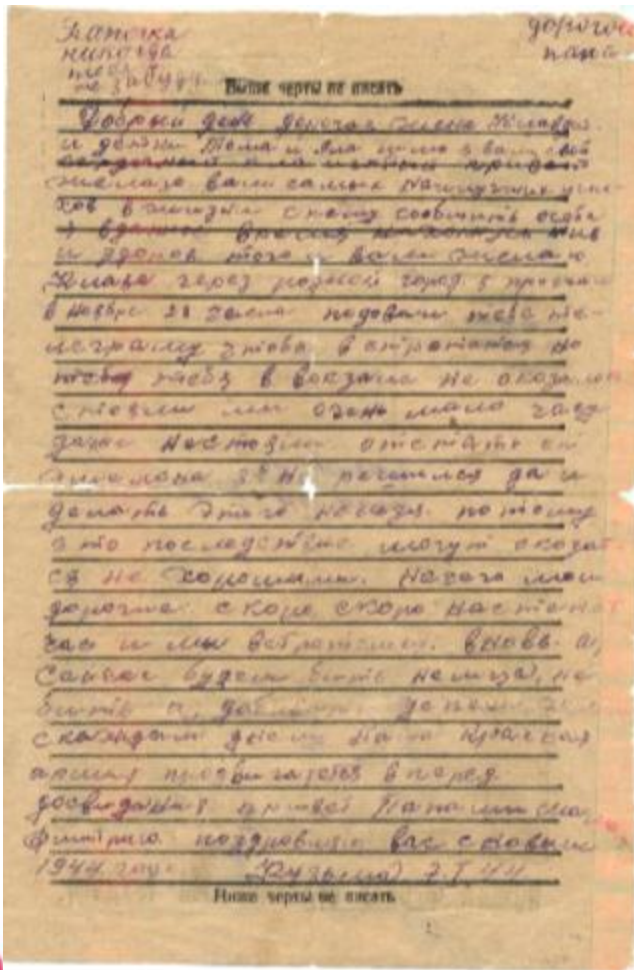 Папочка
никогда
тебя
не забуду
дорогой
папа
Выше черты не писать
Добрый день дорогая жена Клавдия
и детки Тома и Яла шлю я вам свой
сердечный и пламенный привет
желаю вам самых наилучших успе
хов в жизни сообщить особо
в данное время нахожусь жив
и здоров того и вам желаю
Клава через родной город я проехал
в Ноябре 28 числа подовали тебе те
леграмму чтобы встретится но
тебя в вокзала не оказалось
стояли мы очень мало часа
даже не стояли отстать от
эшелона я не решился да и
делать этого нельзя потому
что последствие могут оказат
ся не хорошими. Нечего мои
дорогие скоро скоро настанет
час и мы встретимся вновь а
сейчас будем бить немца, но
бить
с каждым днем Наша Красная
армия продвигается вперед
досвидания привет Папа
поздровляю вас с новым
1944 годом 7.I.44
Ниже черты не писать